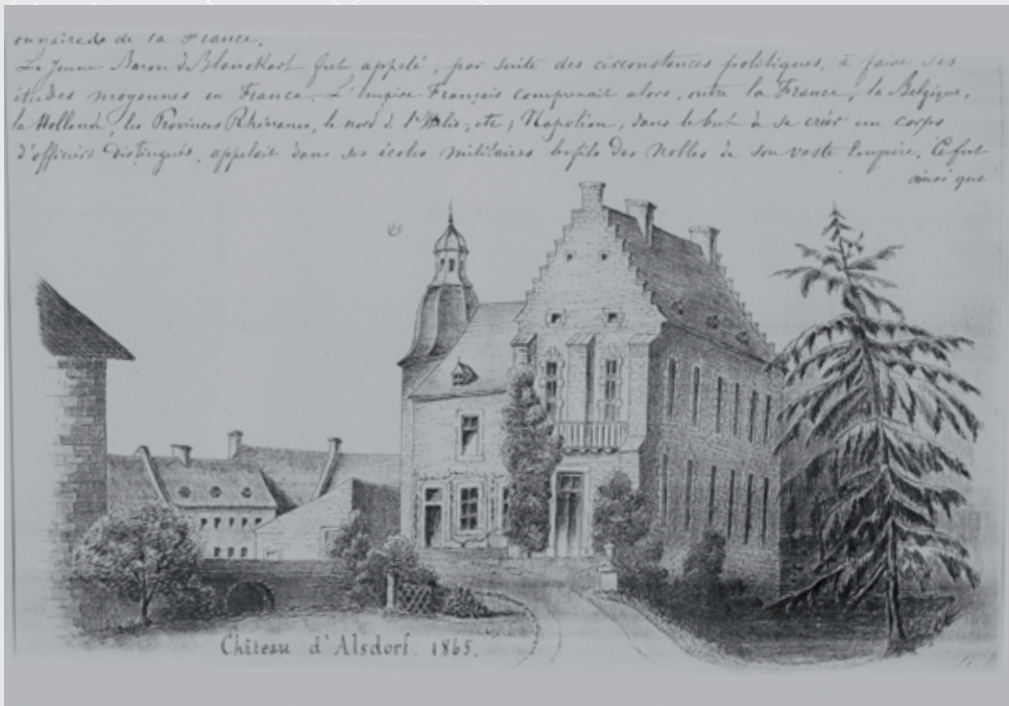 de la France.
Le jeune Baron de Blanckart fut appelé, par suite des circonstances politiques, à faire ses
études moyennes en France. L'empire Français comprenait alors, outre la France, la Belgique,
la Hollande, les Provinces Rhénanes, le nord de l'Italie, etc; Napoléon, dans le but de se créer un corps
d'officiers distingués, appelait dans ses écoles militaires les fils des Nobles de son vaste Empire. Ce fut
ainsi que
Château d'Alsdorf. 1865.